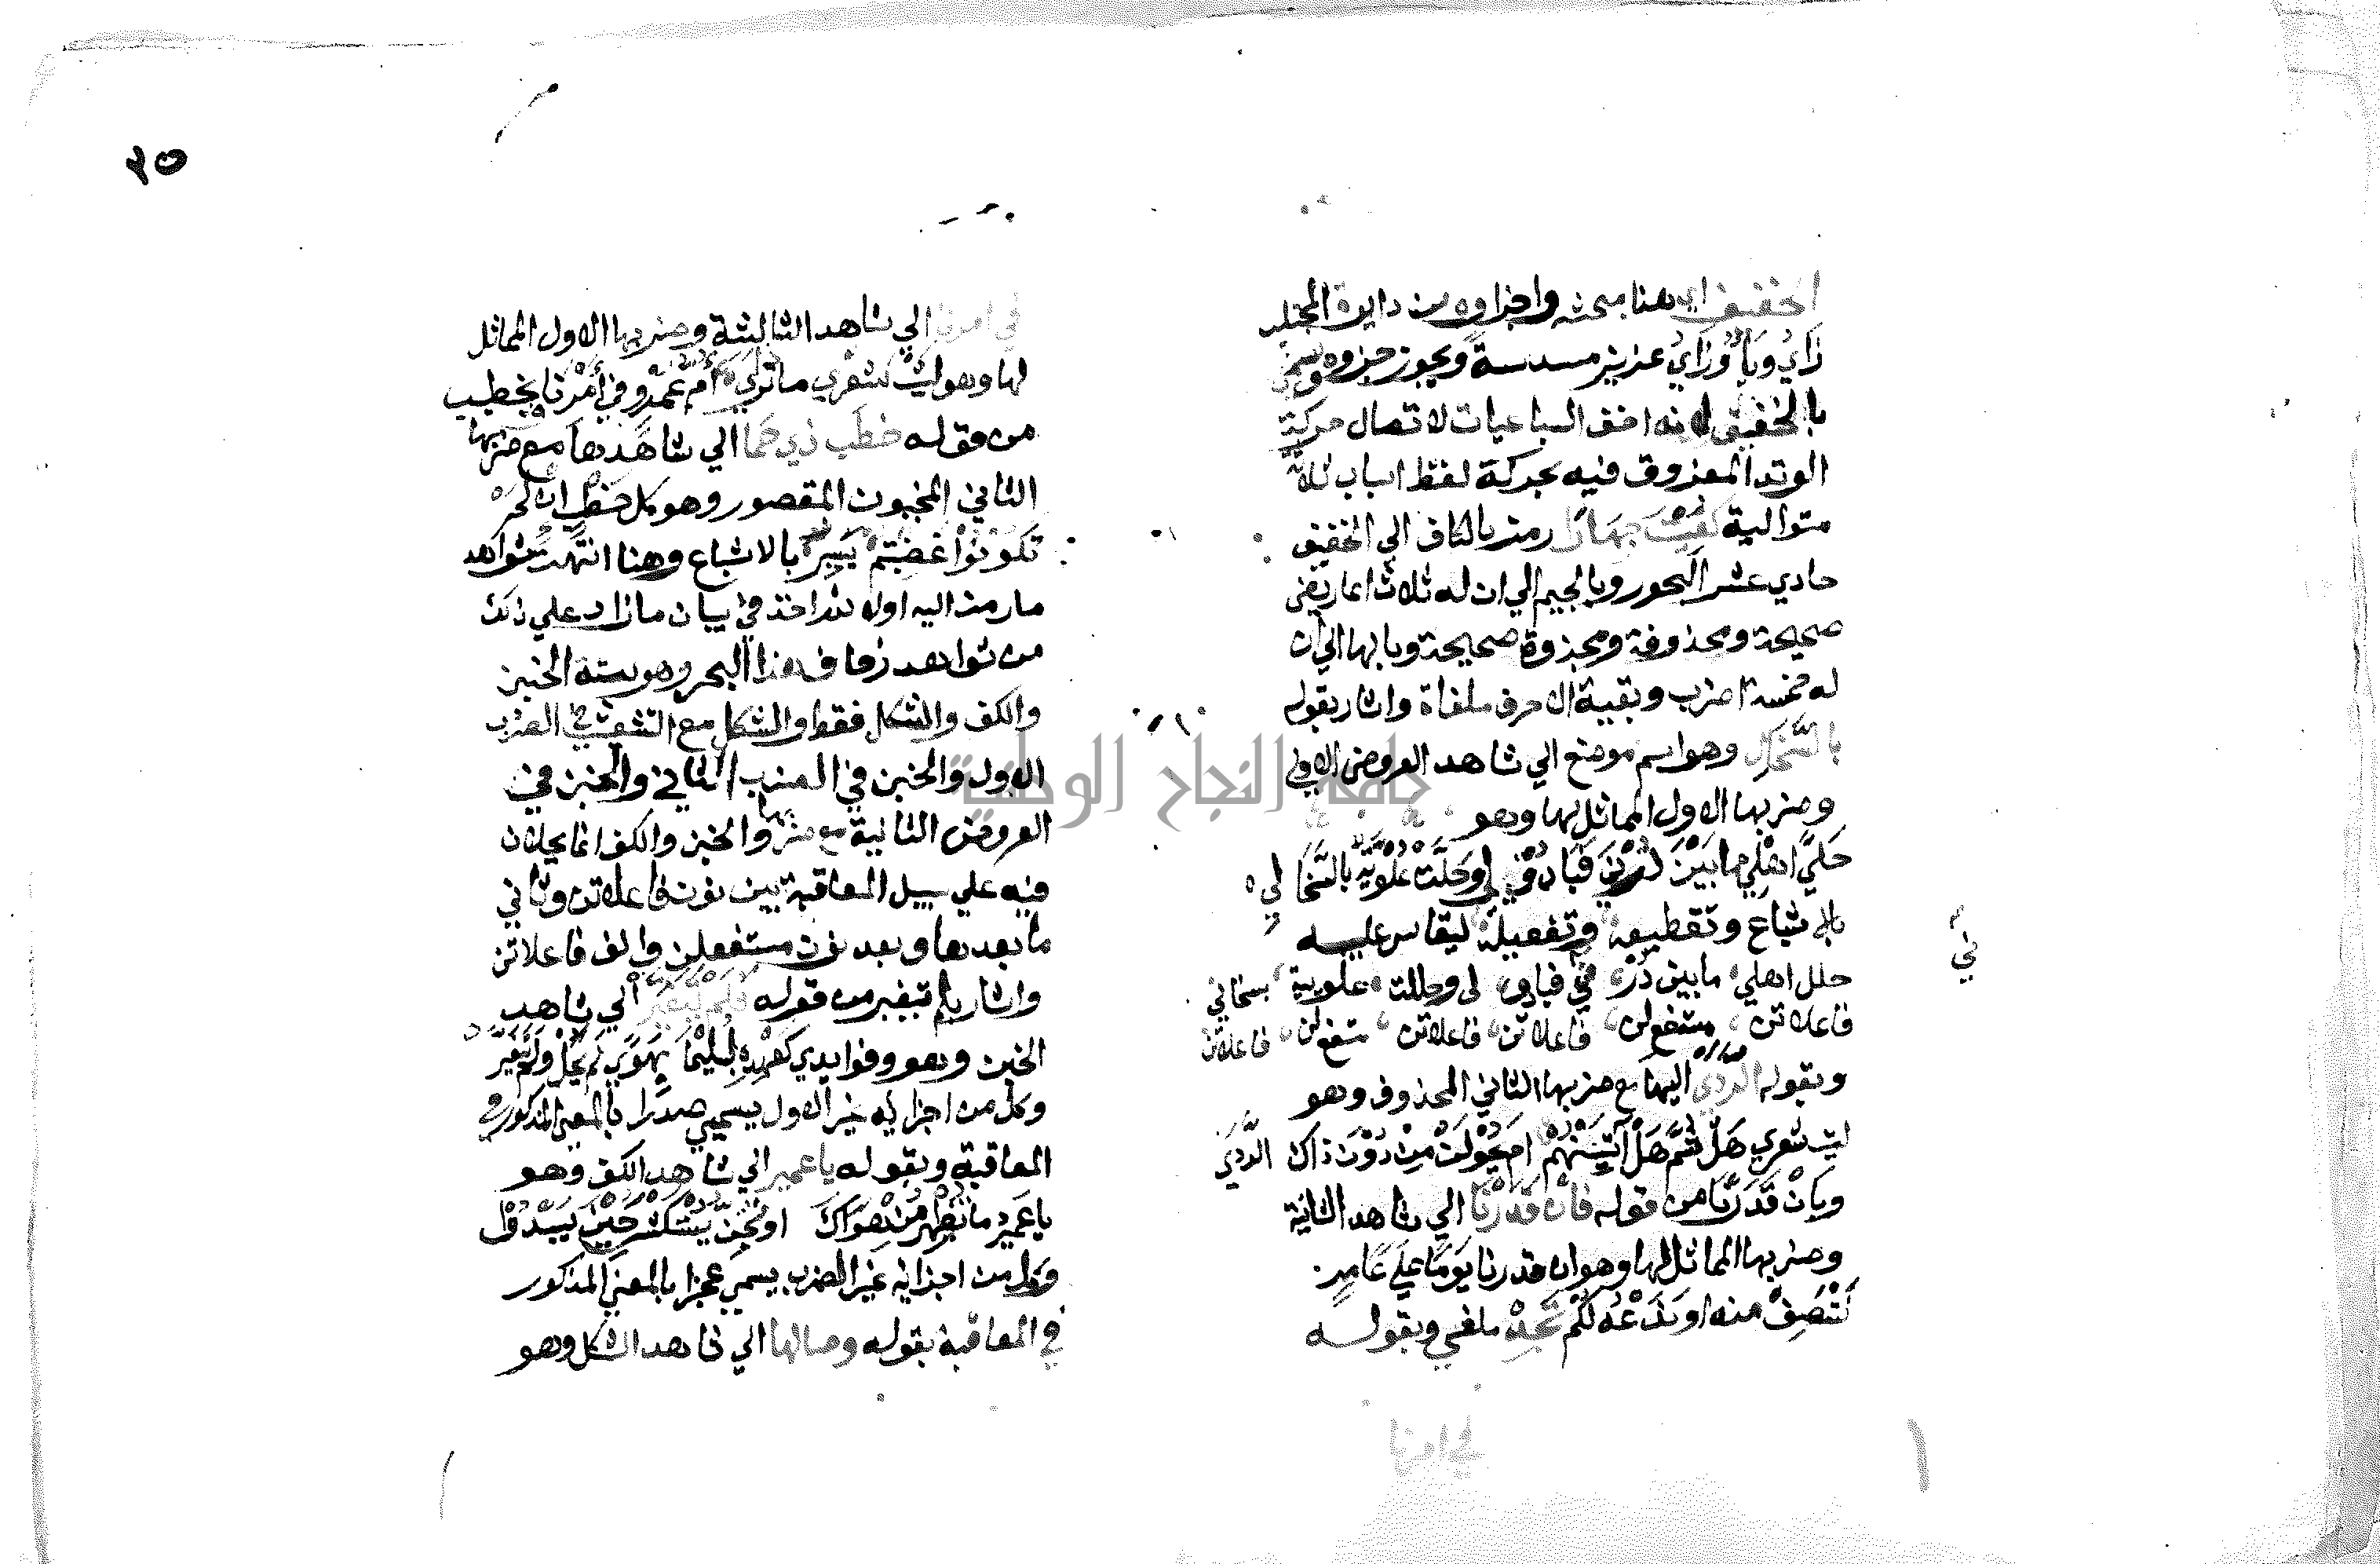 الخفيف اي هنا مبحثه واجزاوه من دايرة المجتلب
زاي وبا وزاي عزيز مسدسة ويجوز جزوه وسمي
بالخفيف لانه اخف السباعيات لاتصال حركة
الوتد المفروق فيه بحركة لفظ اسباب ثلاثة
متوالية كفيت جهارا رمز بالكاف الي الخفيف
حادي عشر البحور وبالجيم الي ان له ثلاث اعاريض
صحيحة ومحذوفة ومجزوة صحيحة وبابها الي ان
له خمسة اضرب وبقية الاحرف ملغاة واشار بقوله
بالسخال وهو اسم موضع الي شاهد العروض الاولي
وضربها الاول المماثل لها وهو
حل اهلي ما بين درني فبادو لي وحلت علوية بالسخالي
بالاشباع وتقطيعه وتفعيله ليقاس عليه
حلل اهلي مابين در ني فبادو لي وحللت علويية بسخالي
فاعلاتن مستفعلن فاعلاتن فاعلاتن متفعلن فاعلاتن
وبقوله الردي اليها مع ضربها الثاني المحذوف وهو
ليت شعري هل ثم هل آتينهم ام يحولن من دون ذاك الردي
وبان قدرنا من قوله فان قدرنا الي شاهد الثانية
وضربها المماثل لها وهو ان قدرنا يوما علي عامر
ننتصف منه او ندعه لكم نجد ملغي وبقوله
في امرنا
٢٥
في امرنا الي شاهد الثالثة وضربها الاول المماثل
لها وهو ليت شعري ماتري ام عمرو في امرنا بخطب
من قوله خطب ذي حما الي شاهدها مع ضربها
الثاني المخبون المقصور وهو كل خطب ان لم
تكونوا غضبتم يسير بالاشباع وهنا انتهت شواهد
مارمز اليه اولا ثم اخذ في بيان مازاد علي ذلك
من شواهد زحاف هذا البحر وهو ستة الخبن
والكف والشكل فقط والشكل مع التشعيث في الضرب
الاول والخبن في الضرب الثاني والخبن في
العروض الثانية مع ضربها والخبن والكف انما يحلان
فيه علي سبيل المعاقبة بين نون فاعلاتن وثاني
ما بعدها وبعد نون مستفعلن والف فاعلاتن
واشار بلم يتغير من قوله فلم يتغير الي شاهد
الخبن وهو وفوادي كعهده لسليما بهوي لم يحل ولم يتغير
وكل من اجزايه غير الاول يسمي صدرا بالمعني المذكور في
المعاقبة وبقوله يا عمير الي شاهد الكف وهو
يا عمير ماتظهر من هواك او تجن يستكثر حين يبدو
وكل من اجزايه غير الضرب يسمي عجزا بالمعني المذكور
في المعاقبة بقوله وصالها الي شاهد الشكل وهو
جامعة النجاح الوطنية